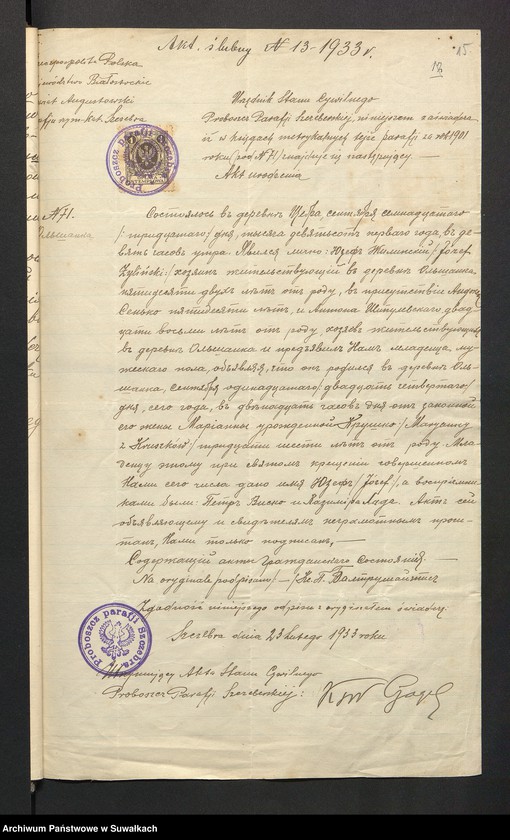 Akt ślubny N 13-1933 r.
15.
Polska
Białostockie
Augustowski
Szczebra
Urzędnik Stanu Cywilnego
Proboszcz Parafji Szczeberskiej, niniejszem zaświadcza
iż w księgach metrykalnych tejże parafji za rok 1901
roku pod N 71 znajduje się następujący
Akt urodzenia
Proboszcz parafji Szczebra
N 71.
Ольшанка
Состоялось въ деревнѣ Щебра, сентября семнадцатого
/тридцатаго/ дня, тысяча девятьсотъ перваго года, въ де-
вять часовъ утра. Явился лично: Юзефъ Жилинскій /Józef
Żyliński:/ хозяинъ жительствующій въ деревнѣ Ольшанка
пятидесяти двухъ лѣтъ отъ роду, въ присутствіи
Сенько пятидесяти лѣтъ, и Антона двад-
цати восьми лѣтъ отъ роду, хозяевъ жительствующихъ
въ деревнѣ Ольшанка и предъявилъ Намъ младенца, му-
жескаго пола, объявляя, что онъ родился въ деревнѣ Оль-
шанка, сентября одиннадцатаго /двадцать четвертаго/
дня, сего года, въ двѣнадцать часовъ дня отъ законной
его жены Маріанны урожденной /Maryanny
z / тридцати шести лѣтъ отъ роду. Мла-
денцу этому при святомъ крещеніи совершенномъ
Нами сего числа дано имя Юзефъ /Józef/, а воспріемни-
ками были: Петръ и Казиміра Актъ сей
объявляющему и свидѣтелямъ неграмотнымъ прочи-
танъ, Нами только подписанъ, —
Содержащій акты Гражданскаго Состоянія. —
Na oryginale podpisano: — /Кс. П.
Zgodność niniejszego odpisu z oryginałem świadczę.
Szczebra dnia 23 lutego 1933 roku
Proboszcz parafji Szczebra
Utrzymujący Akta Stanu Cywilnego
Proboszcz Parafji Szczeberskiej:
Archiwum Państwowe w Suwałkach